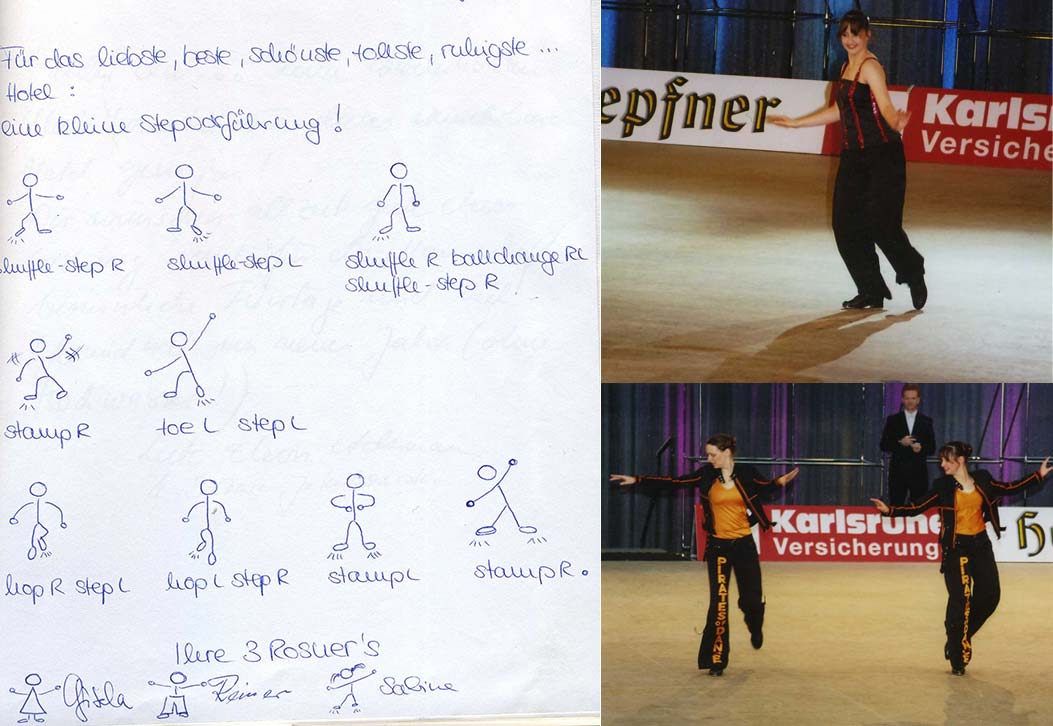 Für das liebste, beste, schönste, tollste, ruhigste ...
Hotel :
eine kleine Stepvorführung !
shuffle-step R shuffle-step L shuffle R ballchange RL
shuffle-step R
stamp R toe L step L
hop R step L hop L step R stamp L stamp R .
Ihre 3 Rosner's
Gisela Reiner Sabine
epfner
Karlsr
Versiche
Karlsruhe
Versicherung
H
PIRATES OF DANCE
PIRATES OF DANCE